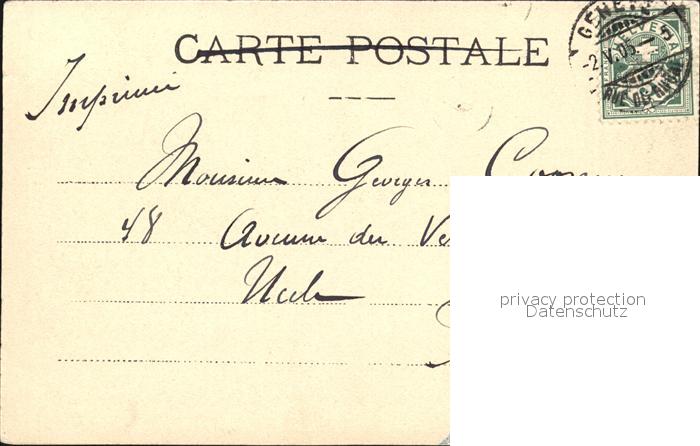 CARTE POSTALE
Imprimé
Monsieur Georges
48 Avenue du
Uccle
GENÈVE
2.V.05
HELVETIA
privacy protection
Datenschutz